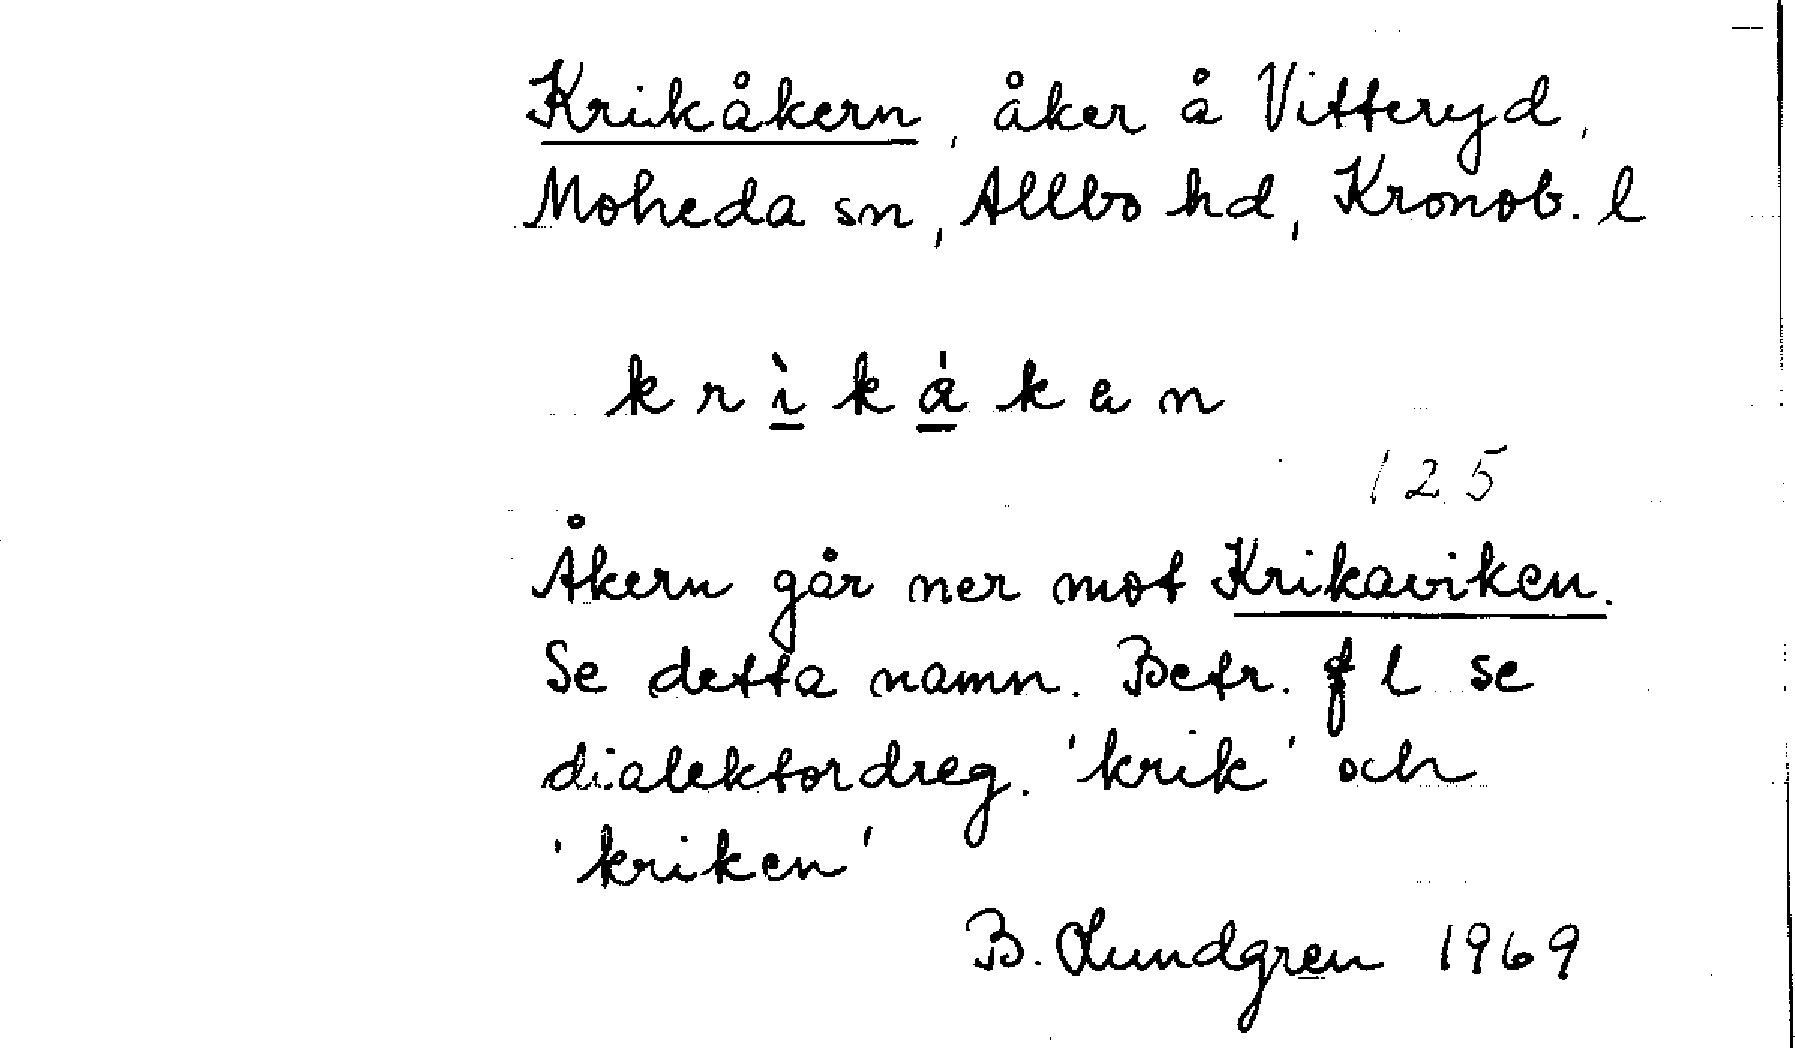 Krikåkern, åker å Vitteryd,
Moheda sn, Allbo hd, Kronob. l
k r ì k á k e n
125
Åkern går ner mot Krikaviken.
Se detta namn. Betr. f l se
dialektordreg. 'krik' och
'kriken'
B. Lundgren 1969